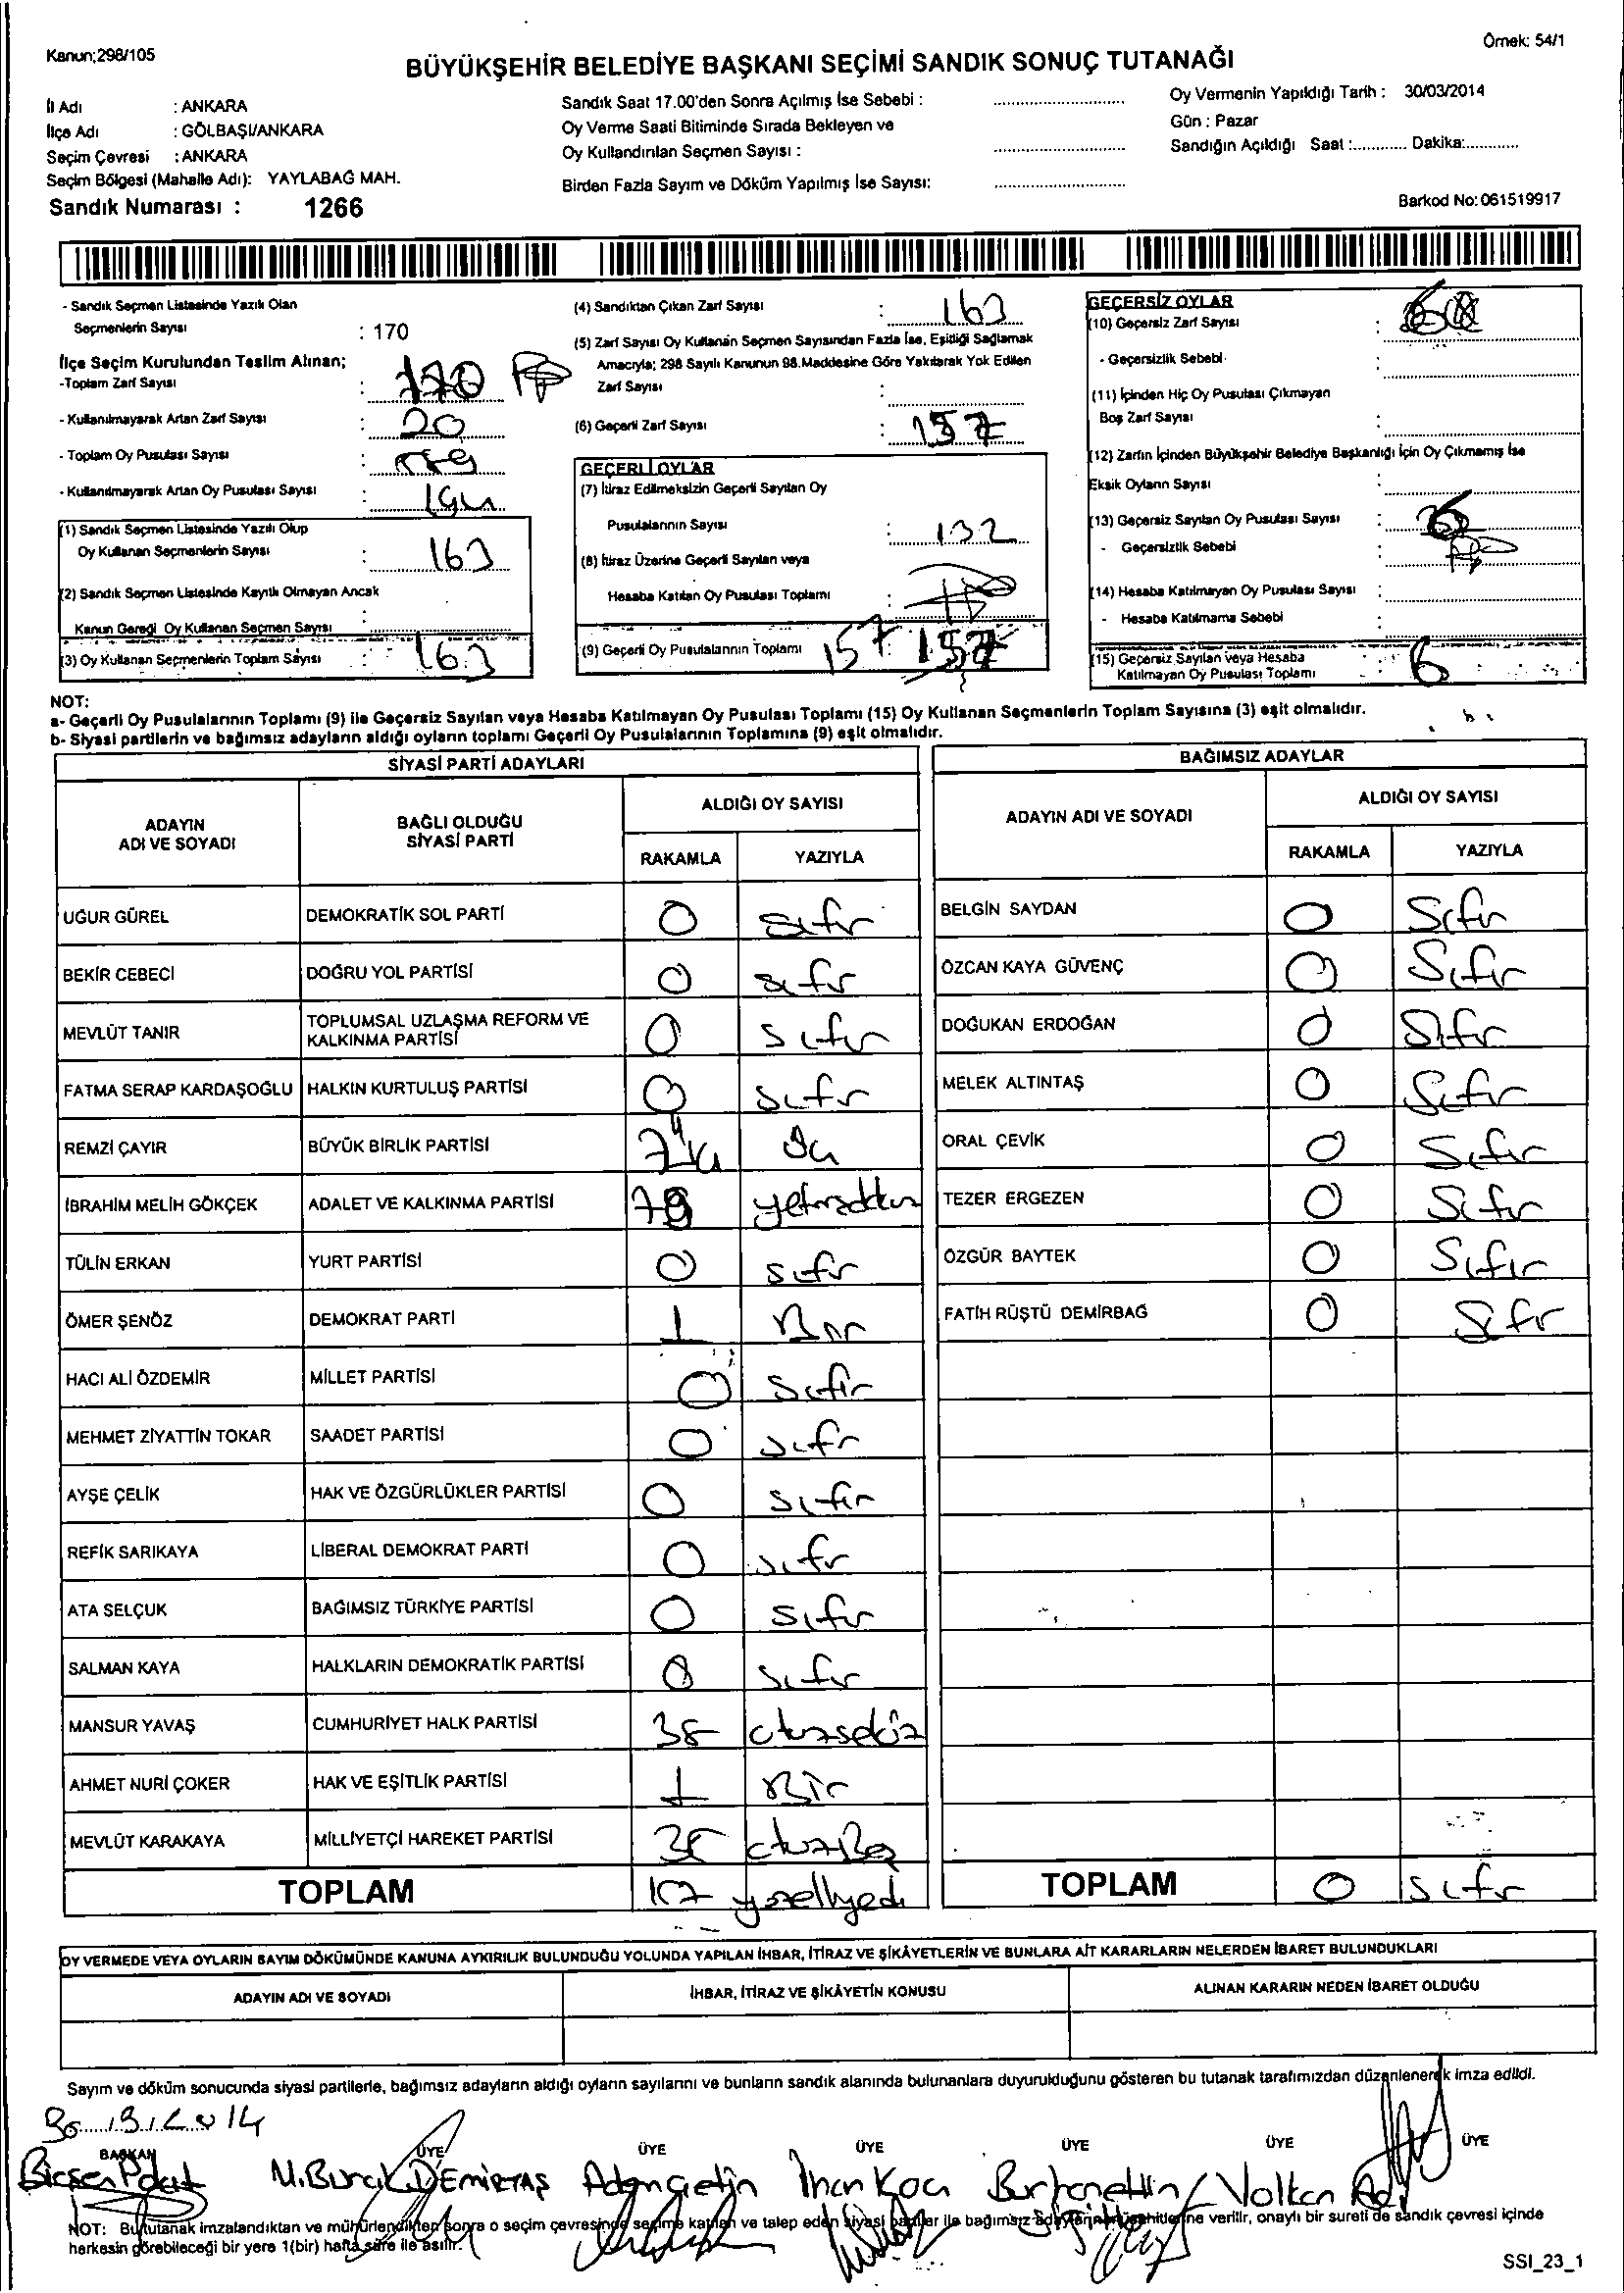 Kanun;298/105
Örnek: 54/1
BÜYÜKŞEHİR BELEDİYE BAŞKANI SEÇİMİ SANDIK SONUÇ TUTANAĞI
İl Adı : ANKARA
İlçe Adı : GÖLBAŞI/ANKARA
Seçim Çevresi : ANKARA
Seçim Bölgesi (Mahalle Adı): YAYLABAĞ MAH.
Sandık Numarası : 1266
Sandık Saat 17.00'den Sonra Açılmış İse Sebebi :
Oy Verme Saati Bitiminde Sırada Bekleyen ve
Oy Kullandırılan Seçmen Sayısı :
Birden Fazla Sayım ve Döküm Yapılmış İse Sayısı:
Oy Vermenin Yapıldığı Tarih : 30/03/2014
Gün : Pazar
Sandığın Açıldığı Saat :............ Dakika:............
Barkod No: 061519917
- Sandık Seçmen Listesinde Yazılı Olan
Seçmenlerin Sayısı : 170
İlçe Seçim Kurulundan Teslim Alınan;
-Toplam Zarf Sayısı : 170
- Kullanılmayarak Artan Zarf Sayısı : 20
- Toplam Oy Pusulası Sayısı :
- Kullanılmayarak Artan Oy Pusulası Sayısı :
(1) Sandık Seçmen Listesinde Yazılı Olup
Oy Kullanan Seçmenlerin Sayısı : 163
(2) Sandık Seçmen Listesinde Kayıtlı Olmayan Ancak
Kanun Gereği Oy Kullanan Seçmen Sayısı :
(3) Oy Kullanan Seçmenlerin Toplam Sayısı : 163
(4) Sandıktan Çıkan Zarf Sayısı : 163
(5) Zarf Sayısı Oy Kullanan Seçmen Sayısından Fazla İse, Eşitliği Sağlamak
Amacıyla; 298 Sayılı Kanunun 98.Maddesine Göre Yakılarak Yok Edilen
Zarf Sayısı :
(6) Geçerli Zarf Sayısı : 157
GEÇERLİ OYLAR
(7) İtiraz Edilmeksizin Geçerli Sayılan Oy
Pusulalarının Sayısı : 132
(8) İtiraz Üzerine Geçerli Sayılan veya
Hesaba Katılan Oy Pusulası Toplamı :
(9) Geçerli Oy Pusulalarının Toplamı 157 : 157
GEÇERSİZ OYLAR
(10) Geçersiz Zarf Sayısı :
- Geçersizlik Sebebi
(11) İçinden Hiç Oy Pusulası Çıkmayan
Boş Zarf Sayısı :
(12) Zarfın İçinden Büyükşehir Belediye Başkanlığı İçin Oy Çıkmamış İse
Eksik Oyların Sayısı :
(13) Geçersiz Sayılan Oy Pusulası Sayısı :
- Geçersizlik Sebebi :
(14) Hesaba Katılmayan Oy Pusulası Sayısı :
- Hesaba Katılmama Sebebi :
(15) Geçersiz Sayılan veya Hesaba
Katılmayan Oy Pusulası Toplamı : 6
NOT:
a- Geçerli Oy Pusulalarının Toplamı (9) ile Geçersiz Sayılan veya Hesaba Katılmayan Oy Pusulası Toplamı (15) Oy Kullanan Seçmenlerin Toplam Sayısına (3) eşit olmalıdır.
b- Siyasi partilerin ve bağımsız adayların aldığı oyların toplamı Geçerli Oy Pusulalarının Toplamına (9) eşit olmalıdır.
SİYASİ PARTİ ADAYLARI
ADAYIN ADI VE SOYADI
BAĞLI OLDUĞU SİYASİ PARTİ
ALDIĞI OY SAYISI
RAKAMLA YAZIYLA
UĞUR GÜREL DEMOKRATİK SOL PARTİ 0 sıfır
BEKİR CEBECİ DOĞRU YOL PARTİSİ 0 sıfır
MEVLÜT TANIR TOPLUMSAL UZLAŞMA REFORM VE KALKINMA PARTİSİ 0 sıfır
FATMA SERAP KARDAŞOĞLU HALKIN KURTULUŞ PARTİSİ 0 sıfır
REMZİ ÇAYIR BÜYÜK BİRLİK PARTİSİ
İBRAHİM MELİH GÖKÇEK ADALET VE KALKINMA PARTİSİ
TÜLİN ERKAN YURT PARTİSİ 0 sıfır
ÖMER ŞENÖZ DEMOKRAT PARTİ 1 Bir
HACI ALİ ÖZDEMİR MİLLET PARTİSİ 0 sıfır
MEHMET ZİYATTİN TOKAR SAADET PARTİSİ 0 sıfır
AYŞE ÇELİK HAK VE ÖZGÜRLÜKLER PARTİSİ 0 sıfır
REFİK SARIKAYA LİBERAL DEMOKRAT PARTİ 0 sıfır
ATA SELÇUK BAĞIMSIZ TÜRKİYE PARTİSİ 0 sıfır
SALMAN KAYA HALKLARIN DEMOKRATİK PARTİSİ 0 sıfır
MANSUR YAVAŞ CUMHURİYET HALK PARTİSİ 38 otuzsekiz
AHMET NURİ ÇOKER HAK VE EŞİTLİK PARTİSİ 1 Bir
MEVLÜT KARAKAYA MİLLİYETÇİ HAREKET PARTİSİ 35 otuzBeş
TOPLAM 157 yüzelliyedi
BAĞIMSIZ ADAYLAR
ADAYIN ADI VE SOYADI
ALDIĞI OY SAYISI
RAKAMLA YAZIYLA
BELGİN SAYDAN 0 Sıfır
ÖZCAN KAYA GÜVENÇ 0 Sıfır
DOĞUKAN ERDOĞAN 0 Sıfır
MELEK ALTINTAŞ 0 Sıfır
ORAL ÇEVİK 0 Sıfır
TEZER ERGEZEN 0 Sıfır
ÖZGÜR BAYTEK 0 Sıfır
FATİH RÜŞTÜ DEMİRBAĞ 0 Sıfır
TOPLAM 0 Sıfır
OY VERMEDE VEYA OYLARIN SAYIM DÖKÜMÜNDE KANUNA AYKIRILIK BULUNDUĞU YOLUNDA YAPILAN İHBAR, İTİRAZ VE ŞİKÂYETLERİN VE BUNLARA AİT KARARLARIN NELERDEN İBARET BULUNDUKLARI
ADAYIN ADI VE SOYADI İHBAR, İTİRAZ VE ŞİKÂYETİN KONUSU ALINAN KARARIN NEDEN İBARET OLDUĞU
Sayım ve döküm sonucunda siyasi partilerle, bağımsız adayların aldığı oyların sayılarını ve bunların sandık alanında bulunanlara duyurulduğunu gösteren bu tutanak tarafımızdan düzenlenerek imza edildi.
30/3/2014
BAŞKAN ÜYE ÜYE ÜYE ÜYE ÜYE ÜYE
M.Burak DEMİRTAŞ İlhan Koca Burhanettin Volkan
NOT: Bu tutanak imzalandıktan ve mühürlendikten sonra o seçim çevresinde seçime katılan ve talep eden siyasi partiler ile bağımsız adayların müşahitlerine verilir, onaylı bir sureti de sandık çevresi içinde
herkesin görebileceği bir yere 1(bir) hafta süre ile asılır.
SSI_23_1